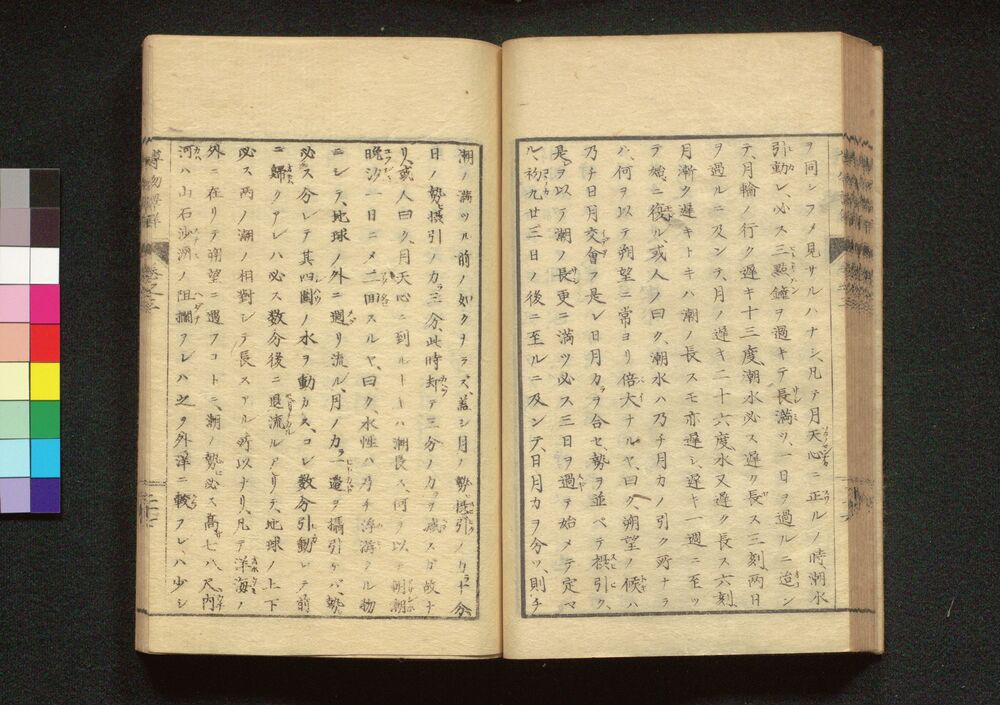 ヲ同シフメ見サルハナシ、凡テ月天心ニ正ルノ時、潮水
引動シ、必ス三點鐘ヲ過キテ長満ツ、一日ヲ過ルニ迨ン
テ、月輪ノ行ク遅キ十三度、潮水必ス遅ク長ス三刻、両日
ヲ過ルニ及ンテ、月ノ遅キ二十六度、水又遅ク長ス六刻、
月漸ク遅キトキハ潮ノ長スモ亦遅シ、遅キ一週ニ至ッ
テ始ニ復ル、或人ノ曰ク、潮水ハ乃チ月力ノ引ク所ナラ
ハ、何ヲ以テ朔望ニ常ヨリ倍大ナルヤ、曰ク、朔望ノ候ハ
乃チ日月交會ヲ是レ日月力ヲ合セ、勢ヲ並ベテ摂引ク、
是ヲ以テ潮ノ長更ニ満ツ必ス三日ヲ過テ始メテ定マ
ル、初九廿三日ノ後ニ至ルニ及ンテ、日月力ヲ分ツ、則チ
潮ノ満ツル前ノ如クナラス、蓋シ月ノ勢摂引ノ力十分
日ノ勢摂引ノ力三分、此時却テ三分ノ力ヲ減スガ故ナ
リ、或人曰ク、月天心ニ到ルトキハ潮長ス、何ヲ以テ朝潮
晩汐一日ニメ二回スルヤ、曰ク、水性ハ乃チ浮游クル物
ニシテ、地球ノ外ニ週リ流ル、月ノ力一邉ヲ攝引ケバ、勢
必ス分レテ其四圍ノ水ヲ動カス、コレ数分引動レテ前
ニ歸クアレハ必ス数分後ニ退流ルアリテ、地球ノ上下
必ス両ノ潮ノ相對シテ長スアル所以ナリ、凡テ洋海ノ
外ニ在リテ朔望ニ遇フコトニ、潮ノ勢必ス高サ七八尺、内
河ハ山石沙洲ノ阻攔フレハ之ヲ外洋ニ較フレハ少シ